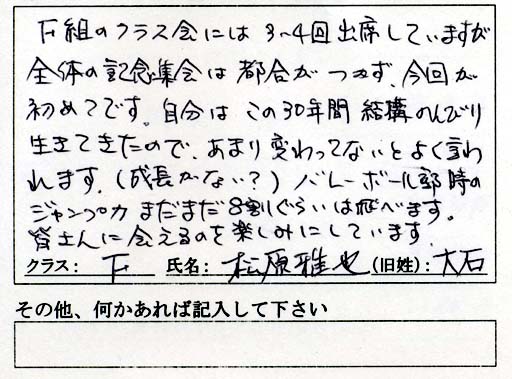 F組のクラス会には 3~4回出席していますが
全体の記念集会は都合がつかず、今回が
初めてです。自分はこの30年間結構のんびり
生きてきたので、あまり変わってないとよく言わ
れます。(成長がない?) バレーボール部時の
ジャンプ力 まだまだ8割ぐらいは飛べます。
皆さんに会えるのを楽しみにしています。
クラス: F 氏名: 松原雅也 (旧姓): 大石
その他、何かあれば記入して下さい